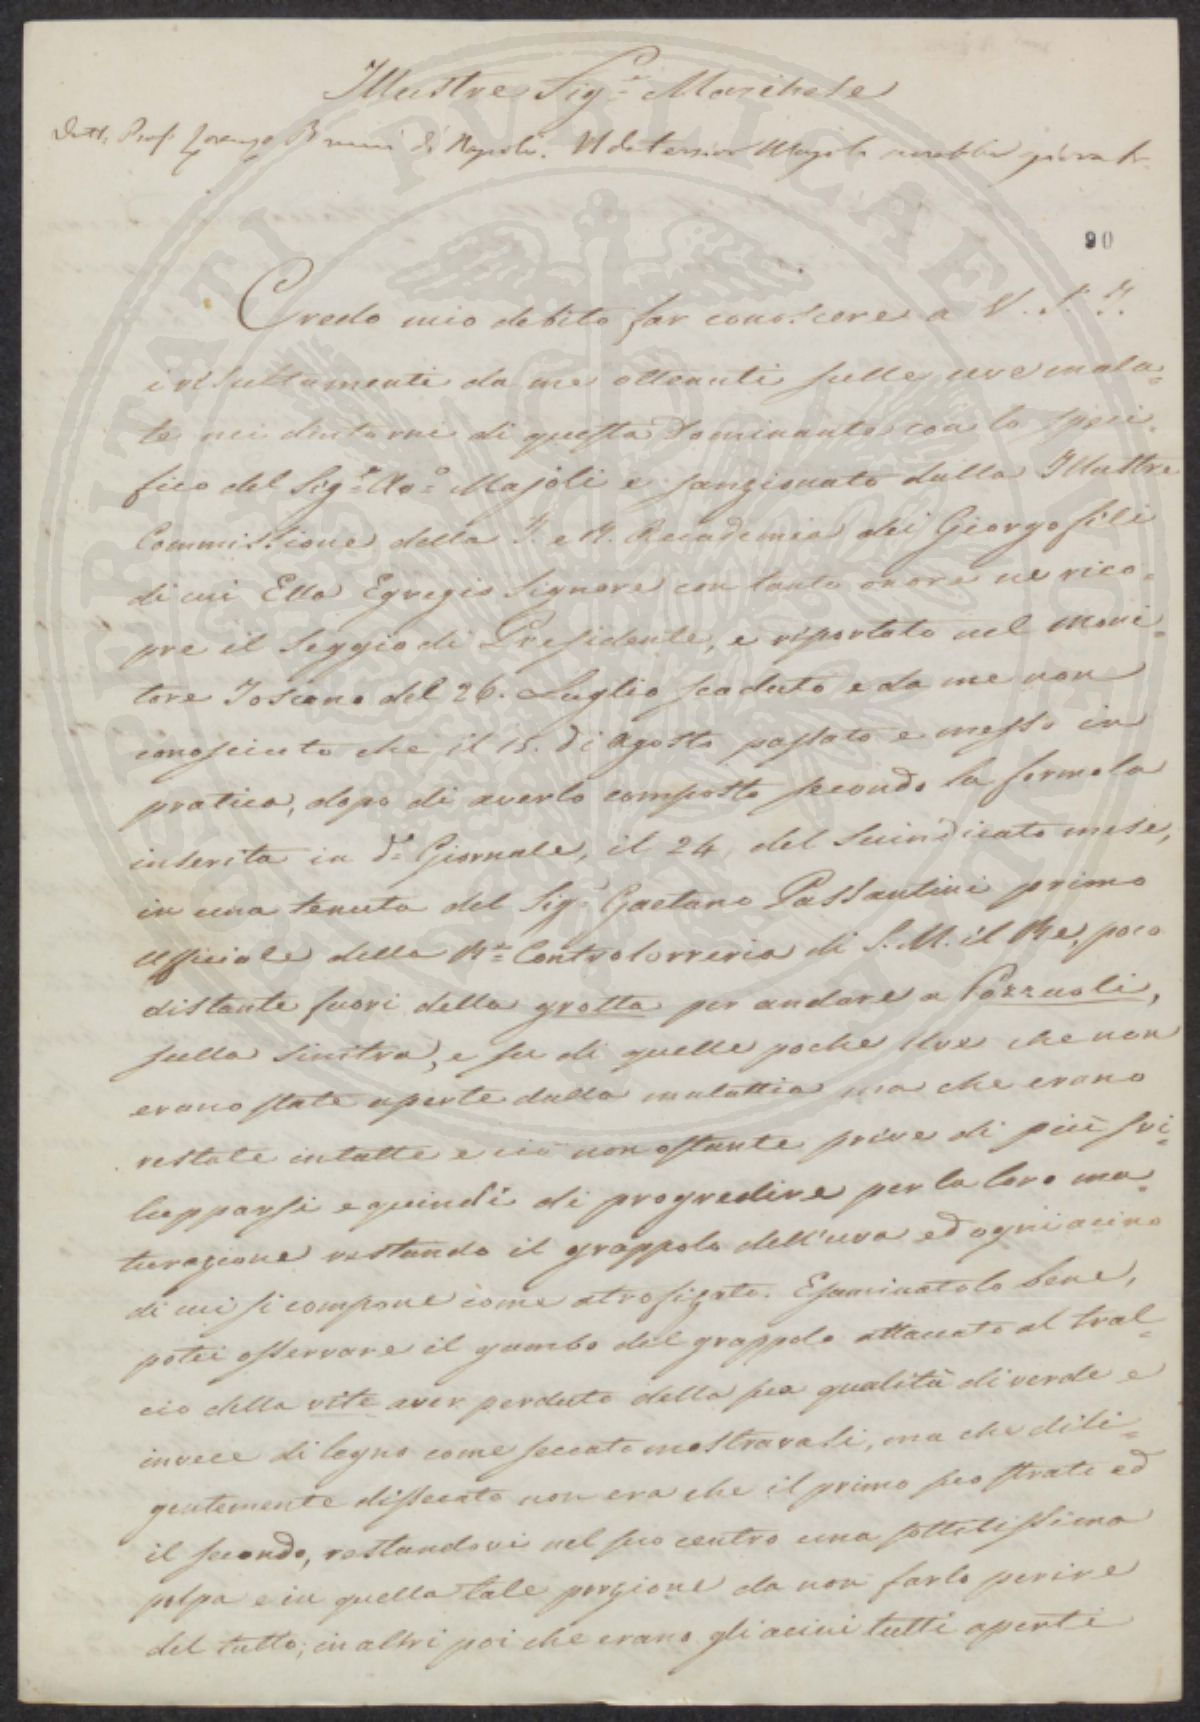 Illustre Sig.re Marchese
Dott. Prof. Lorenzo Bruni di Napoli. Il detersivo Majoli sarebbe giovato
90
Credo mio debito far conoscere a V. S. I.
i risultamenti da me ottenuti sulle uve mala=
te nei dintorni di questa Dominante con lo speci=
fico del Sig.r Ao.o Majoli e sanzionato dalla Illustre
Commissione della I. e R. Accademia dei Giorgofili
di cui Ella Egregio Signore con tanto onore ne rico=
pre il Seggio di Presidente, e riportato nel Moni=
tore Toscano del 26. Luglio scaduto e da me non
conosciuto che il 15. di Agosto passato e messo in
pratica, dopo di averlo composto secondo la formola
inserita in d.o Giornale, il 24 del suindicato mese,
in una tenuta del Sig.r Gaetano Passantini primo
Ufficiale della R.le Controlorreria di S. M. il Re, poco
distante fuori della grotta per andare a Pozzuoli,
sulla sinistra, e su di quelle poche Uve che non
erano state aperte dalla malattia ma che erano
restate intatte e ciò non ostante prive di più svi=
lupparsi e quindi di progredire per la loro ma=
turazione restando il grappolo dell'uva ed ogni acino
di cui si compone come atrofizato. Esaminatolo bene,
potei osservare il gambo del grappolo attaccato al tral=
cio della vite aver perduto della sua qualità di verde e
invece di legno come seccato mostravasi, ma che dili=
gentemente dissecato non era che il primo suo strato ed
il secondo, restandovi nel suo centro una sottilissima
polpa e in quella tale porzione da non farlo perire
del tutto; in altri poi che erano gli acini tutti aperti